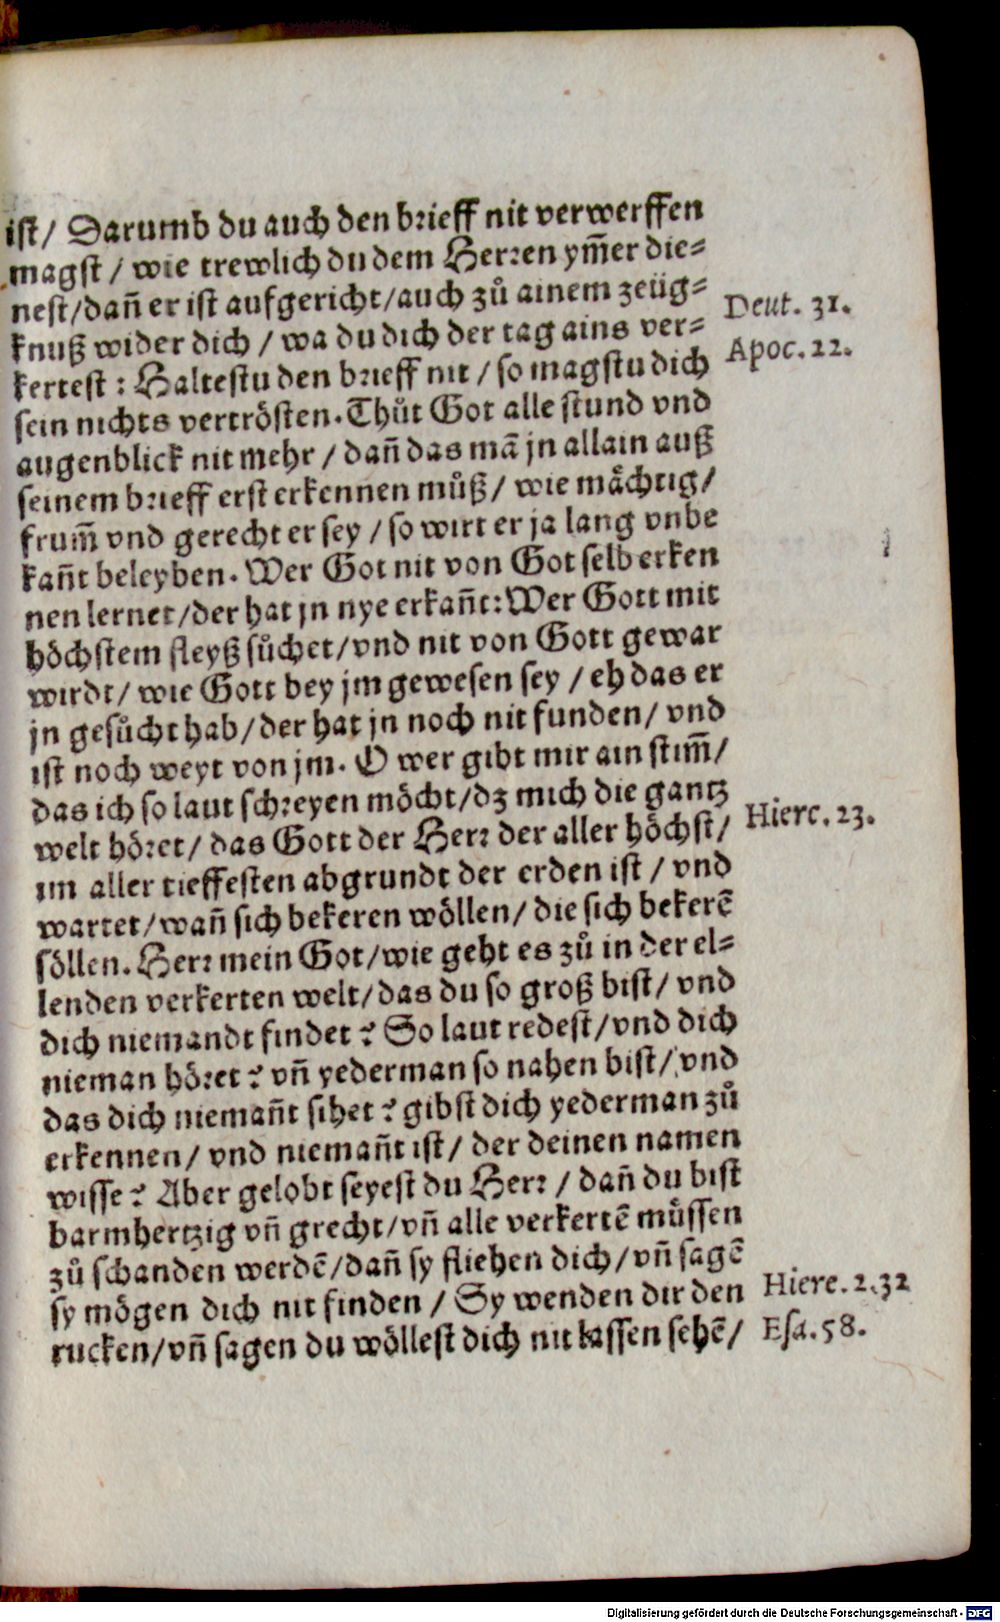 ist/ Darumb du auch den brieff nit verwerffen
magst / wie trewlich du dem Herren ym̃er die⸗
nest/dañ er ist aufgericht/auch zů ainem zeüg⸗
knuß wider dich / wa du dich der tag ains ver⸗
Deut. 31.
kertest : Haltestu den brieff nit / so magstu dich
Apoc. 22.
sein nichts vertrösten. Thůt Got alle stund vnd
augenblick nit mehr / dañ das mã jn allain auß
seinem brieff erst erkennen můß/ wie mächtig/
frum̃ vnd gerecht er sey / so wirt er ja lang vnbe
kañt beleyben. Wer Got nit von Got selb erken
nen lernet/der hat jn nye erkañt: Wer Gott mit
höchstem fleyß sůchet/vnd nit von Gott gewar
wirdt/ wie Gott bey jm gewesen sey / eh das er
jn gesůcht hab/der hat jn noch nit funden/ vnd
ist noch weyt von jm. O wer gibt mir ain stim̃/
das ich so laut schreyen möcht/dz mich die gantz
welt höret/ das Gott der Herr der aller höchst/
Hiere. 23.
im aller tieffesten abgrundt der erden ist / vnd
wartet/wañ sich bekeren wöllen/ die sich bekerẽ
söllen. Herr mein Got/wie geht es zů in der el⸗
lenden verkerten welt/das du so groß bist/ vnd
dich niemandt findet ? So laut redest/vnd dich
nieman höret ? vñ yederman so nahen bist/ vnd
das dich niemañt sihet ? gibst dich yederman zů
erkennen/ vnd niemañt ist/ der deinen namen
wisse ? Aber gelobt seyest du Herr / dañ du bist
barmhertzig vñ grecht/vñ alle verkertẽ müssen
zů schanden werdẽ/dañ sy fliehen dich/vñ sagẽ
sy mögen dich nit finden / Sy wenden dir den
Hiere. 2.32
rucken/vñ sagen du wöllest dich nit lassen sehẽ/
Esa. 58.
Digitalisierung gefördert durch die Deutsche Forschungsgemeinschaft - DFG